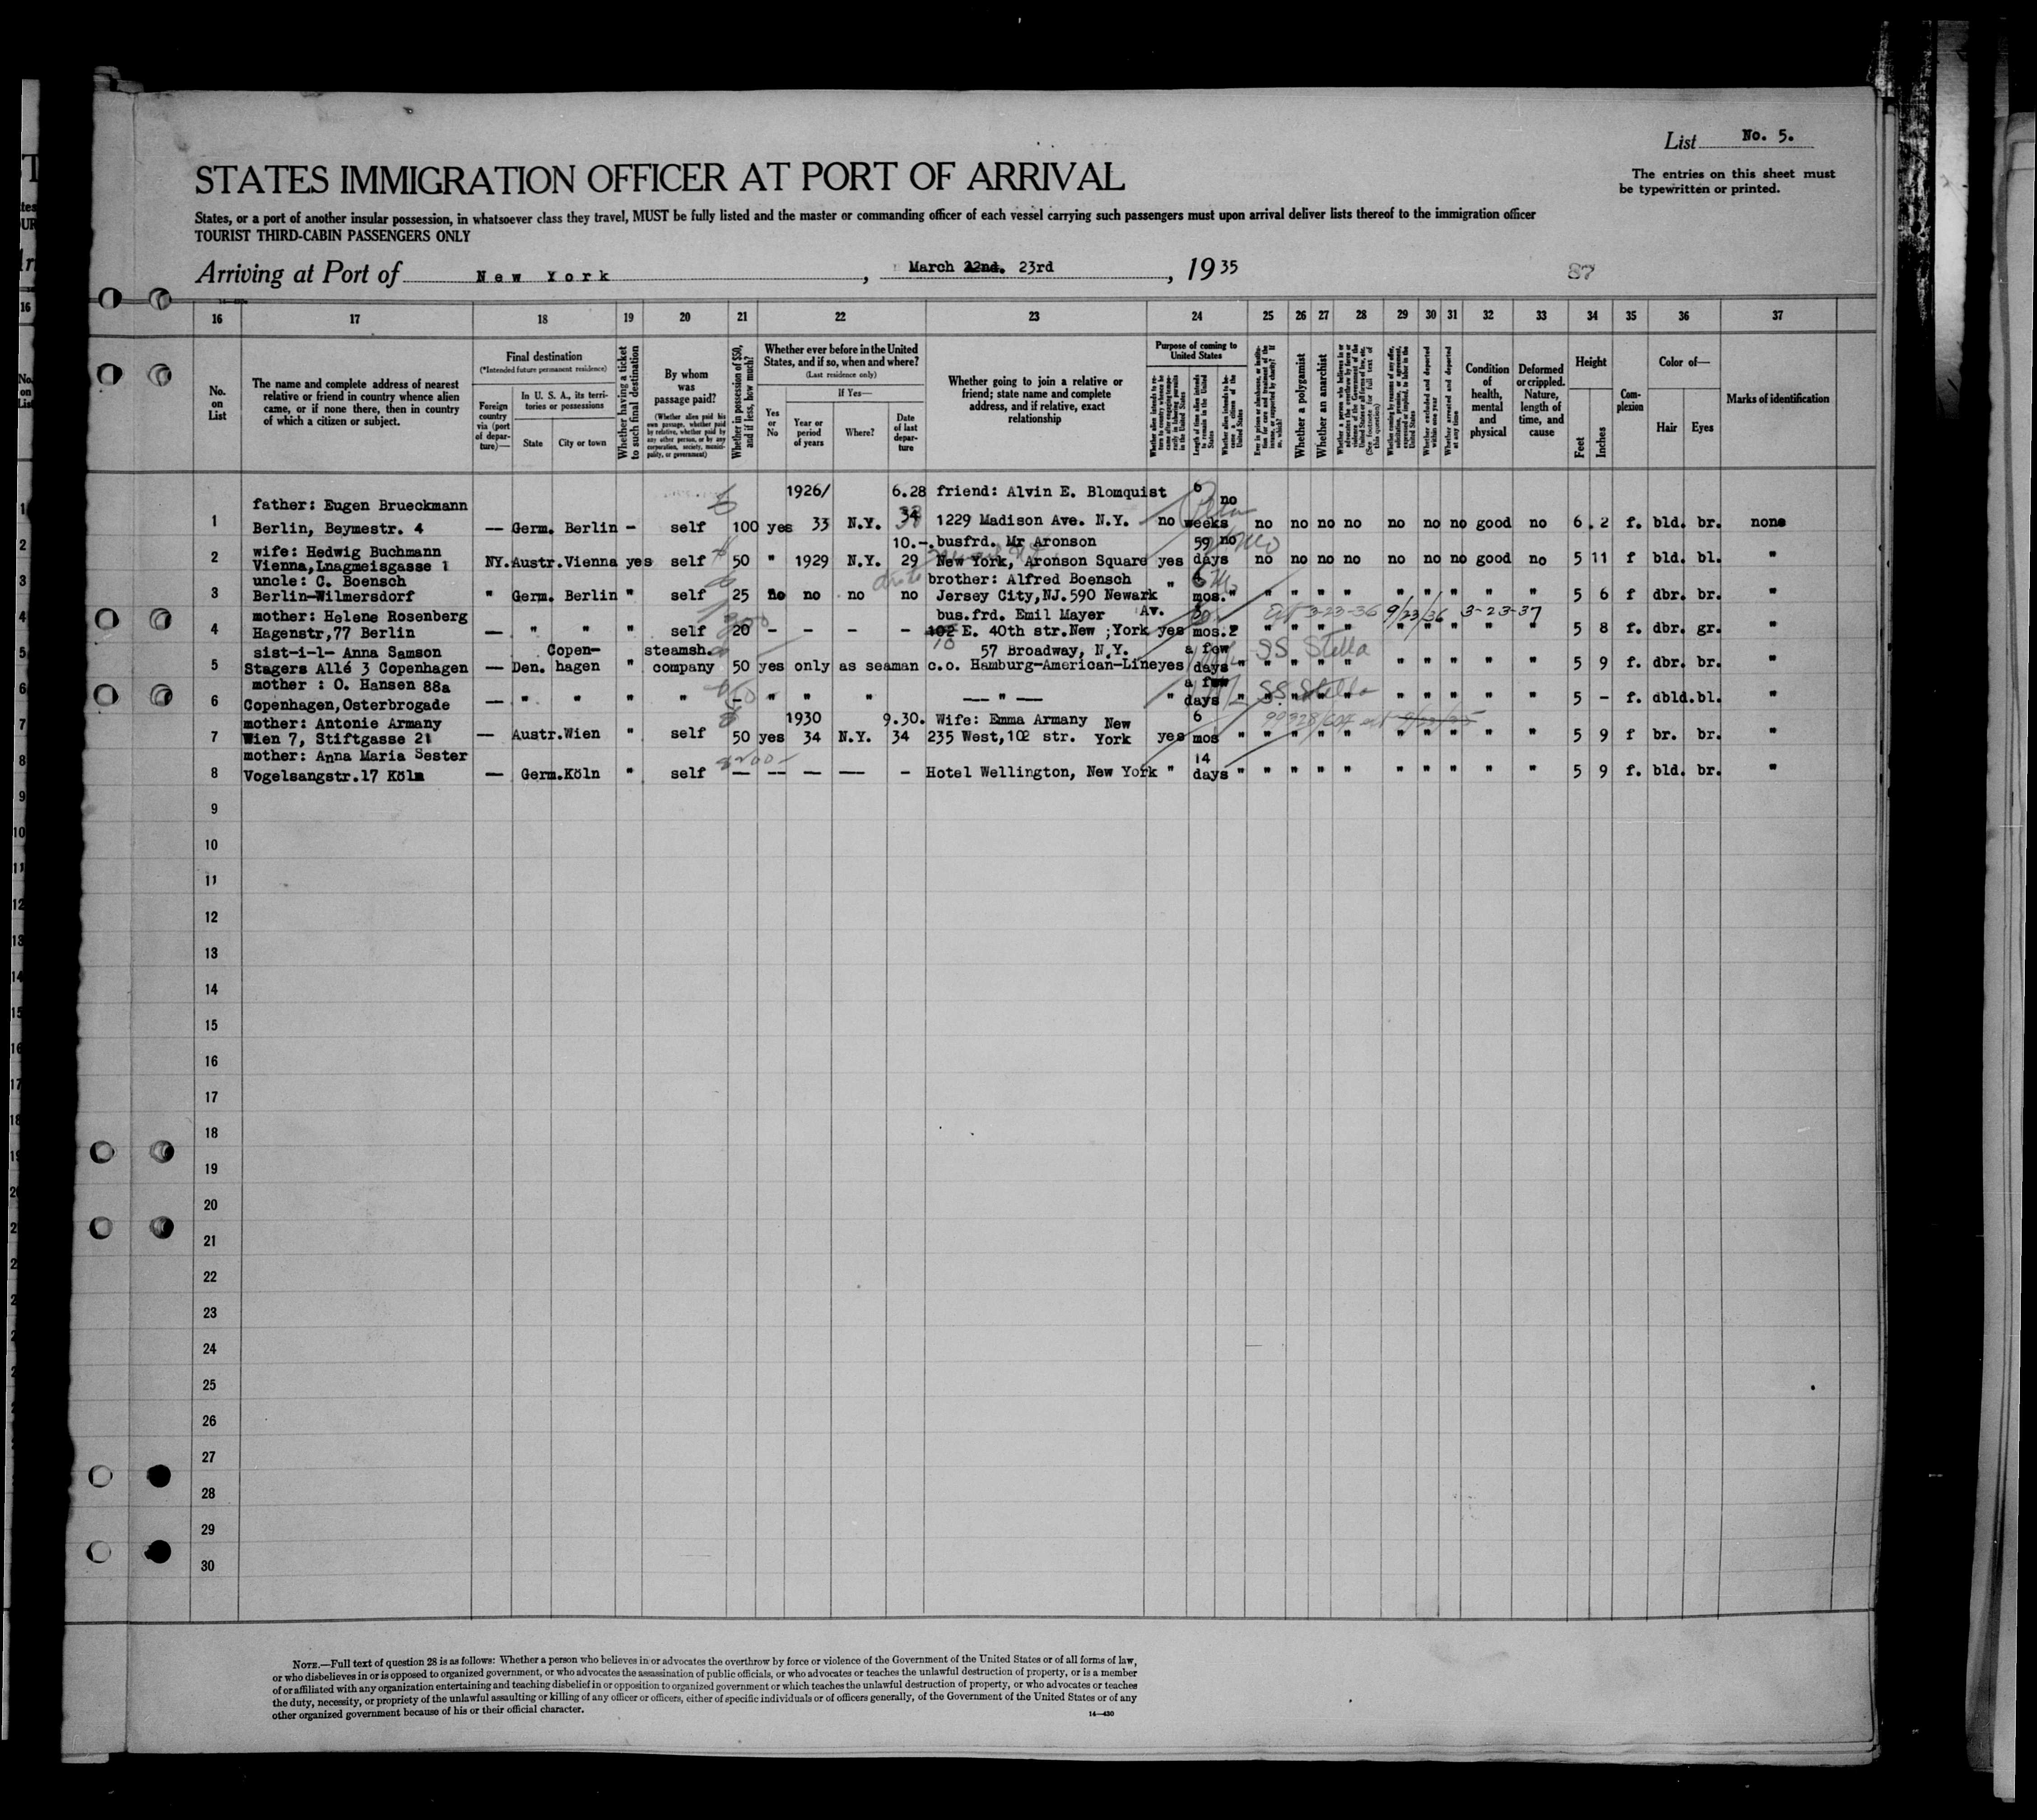 List No. 5.
The entries on this sheet must
be typewritten or printed.
STATES IMMIGRATION OFFICER AT PORT OF ARRIVAL
States, or a port of another insular possession, in whatsoever class they travel, MUST be fully listed and the master or commanding officer of each vessel carrying such passengers must upon arrival deliver lists thereof to the immigration officer
TOURIST THIRD-CABIN PASSENGERS ONLY
Arriving at Port of New York, March 22nd. 23rd, 1935
87
16 17 18 19 20 21 22 23 24 25 26 27 28 29 30 31 32 33 34 35 36 37
No. on List
The name and complete address of nearest
relative or friend in country whence alien
came, or if none there, then in country
of which a citizen or subject.
Final destination
(*Intended future permanent residence)
Foreign country via (port of departure)—
In U. S. A., its territories or possessions
State
City or town
Whether having a ticket to such final destination
By whom was passage paid?
(Whether alien paid his own passage, whether paid by relative, whether paid by any other person, or by any corporation, society, municipality, or government)
Whether in possession of $50, and if less, how much?
Whether ever before in the United States, and if so, when and where?
(Last residence only)
Yes or No
If Yes—
Year or period of years
Where?
Date of last departure
Whether going to join a relative or
friend; state name and complete
address, and if relative, exact
relationship
Purpose of coming to United States
Length of time alien intends to remain in the United States
Whether alien intends to become a citizen of the United States
Whether a polygamist
Whether an anarchist
Whether excluded and deported within one year
Whether arrested and deported at any time
Condition of health, mental and physical
Deformed or crippled. Nature, length of time, and cause
Height
Feet
Inches
Complexion
Color of—
Hair
Eyes
Marks of identification
father: Eugen Brueckmann 1926/ 6.28 friend: Alvin E. Blomquist 6 no
1 Berlin, Beymestr. 4 — Germ. Berlin - self 100 yes 33 N.Y. 34 1229 Madison Ave. N.Y. no weeks no no no no no no no good no 6.2 f. bld. br. none
wife: Hedwig Buchmann 10.-. busfrd. Mr Aronson 59 no
2 Vienna, Lnagmeisgasse 1 NY. Austr. Vienna yes self 50 " 1929 N.Y. 29 New York, Aronson Square yes days no no no no no no no good no 5 11 f bld. bl. "
uncle: C. Boensch brother: Alfred Boensch 6
3 Berlin-Wilmersdorf " Germ. Berlin " self 25 no no no no Jersey City, NJ. 590 Newark Av. " mos. " " " " " " " " " " 5 6 f dbr. br. "
mother: Helene Rosenberg bus.frd. Emil Mayer 3-23-36 9/23/36 3-23-37
4 Hagenstr, 77 Berlin — " " " self 20 - - - - 102 E. 40th str. New ; York yes mos. " " " " " " " " " 5 8 f. dbr. gr. "
sist-i-l- Anna Samson Copen- steamsh. 57 Broadway, N.Y. a few SS Stella
5 Stagers Allé 3 Copenhagen — Den. hagen " company 50 yes only as seaman c.o. Hamburg-American-Line yes days " " " " " " " " " " 5 9 f. dbr. br. "
mother : O. Hansen 88a a few SS. Stella
6 Copenhagen, Osterbrogade — " " " " - " " " — " — " days " " " " " " " " " 5 - f. dbld. bl. "
mother: Antonie Armany 1930 9.30. Wife: Emma Armany New 6
7 Wien 7, Stiftgasse 21 — Austr. Wien " self 50 yes 34 N.Y. 34 235 West, 102 str. York yes mos " " " " " " " " " " 5 9 f br. br. "
mother: Anna Maria Sester 14
8 Vogelsangstr. 17 Köln — Germ. Köln " self — -- — — - Hotel Wellington, New York " days " " " " " " " " " " 5 9 f. bld. br. "
9
10
11
12
13
14
15
16
17
18
19
20
21
22
23
24
25
26
27
28
29
30
NOTE.—Full text of question 28 is as follows: Whether a person who believes in or advocates the overthrow by force or violence of the Government of the United States or of all forms of law,
or who disbelieves in or is opposed to organized government, or who advocates the assassination of public officials, or who advocates or teaches the unlawful destruction of property, or is a member
of or affiliated with any organization entertaining and teaching disbelief in or opposition to organized government or which teaches the unlawful destruction of property, or who advocates or teaches
the duty, necessity, or propriety of the unlawful assaulting or killing of any officer or officers, either of specific individuals or of officers generally, of the Government of the United States or of any
other organized government because of his or their official character.
14—430